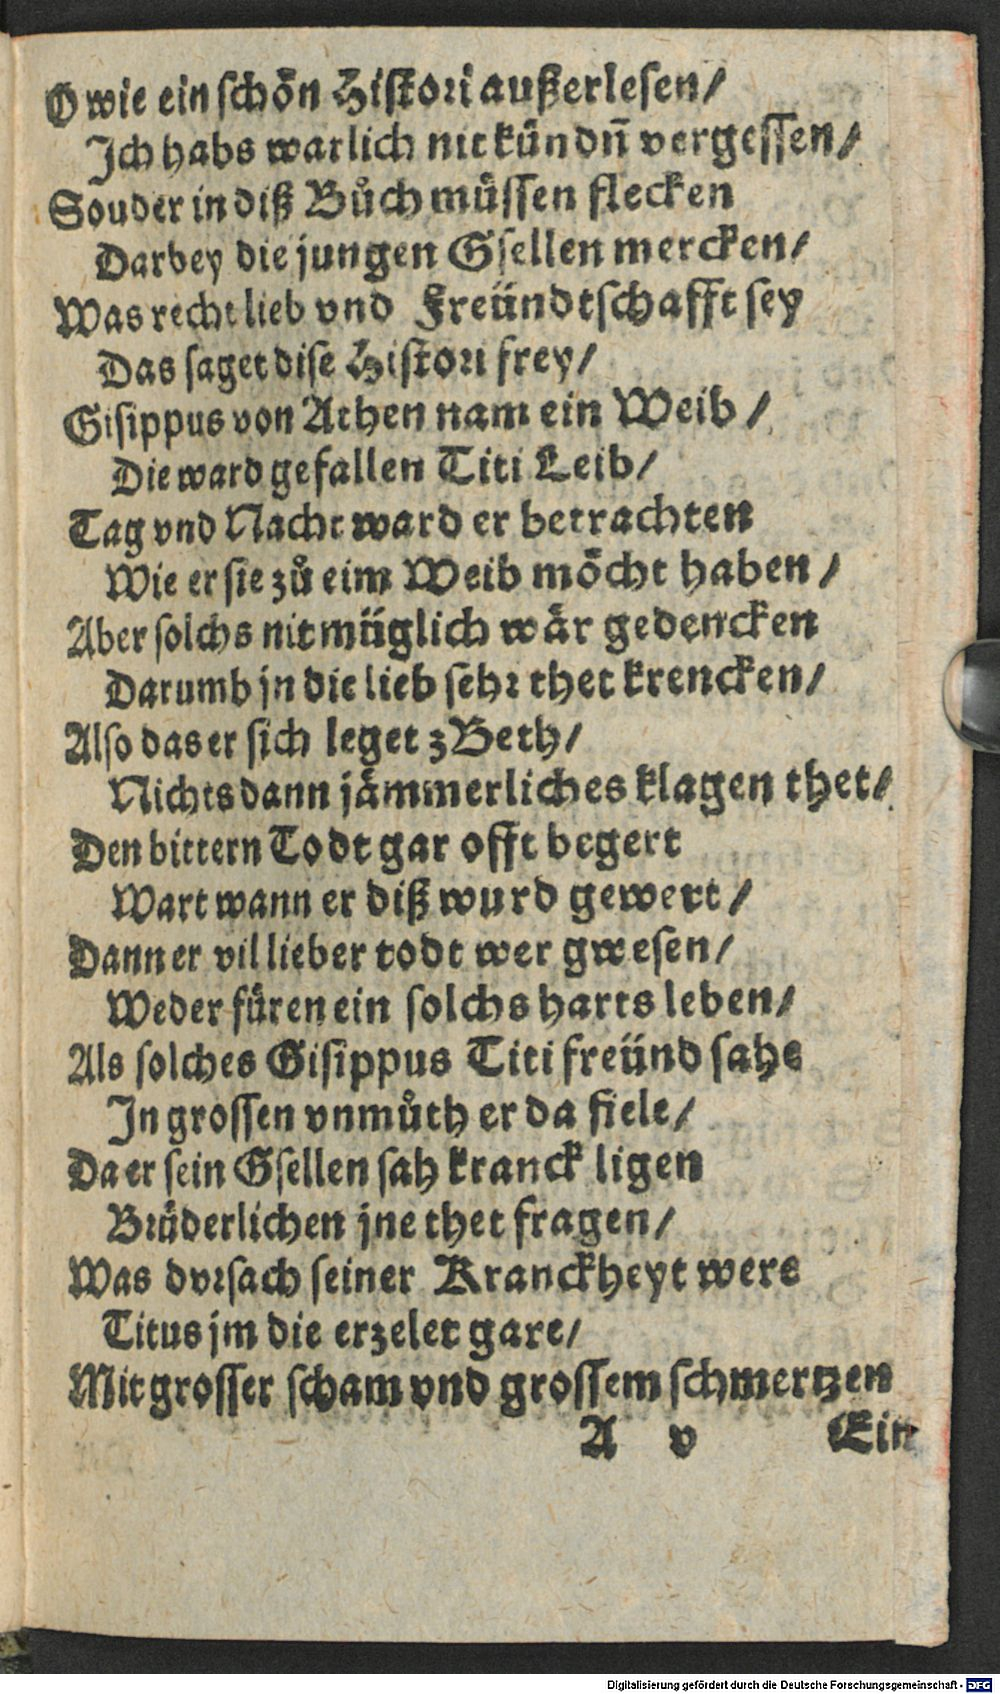 O wie ein schön Histori außerlesen/
Ich habs warlich nit kündñ vergessen/
Souder in diß Bůch müssen flecken
Darbey die jungen Gsellen mercken/
Was recht lieb vnd Freündtschafft sey
Das saget dise Histori frey/
Gisippus von Athen nam ein Weib/
Die ward gefallen Titi Leib/
Tag vnd Nacht ward er betrachten
Wie er sie zů eim Weib möcht haben/
Aber solchs nit müglich wär gedencken
Darumb jn die lieb sehr thet krencken/
Also das er sich leget z Beth/
Nichts dann jämmerliches klagen thet/
Den bittern Todt gar offt begert
Wart wann er diß wurd gewert/
Dann er vil lieber todt wer gwesen/
Weder füren ein solchs harts leben/
Als solches Gisippus Titi freünd sahe
In grossen vnmůth er da fiele/
Da er sein Gsellen sah kranck ligen
Brüderlichen jne thet fragen/
Was dvrsach seiner Kranckheyt were
Titus jm die erzelet gare/
Mit grosser scham vnd grossem schmertzen
A v Ein
Digitalisierung gefördert durch die Deutsche Forschungsgemeinschaft - DFG